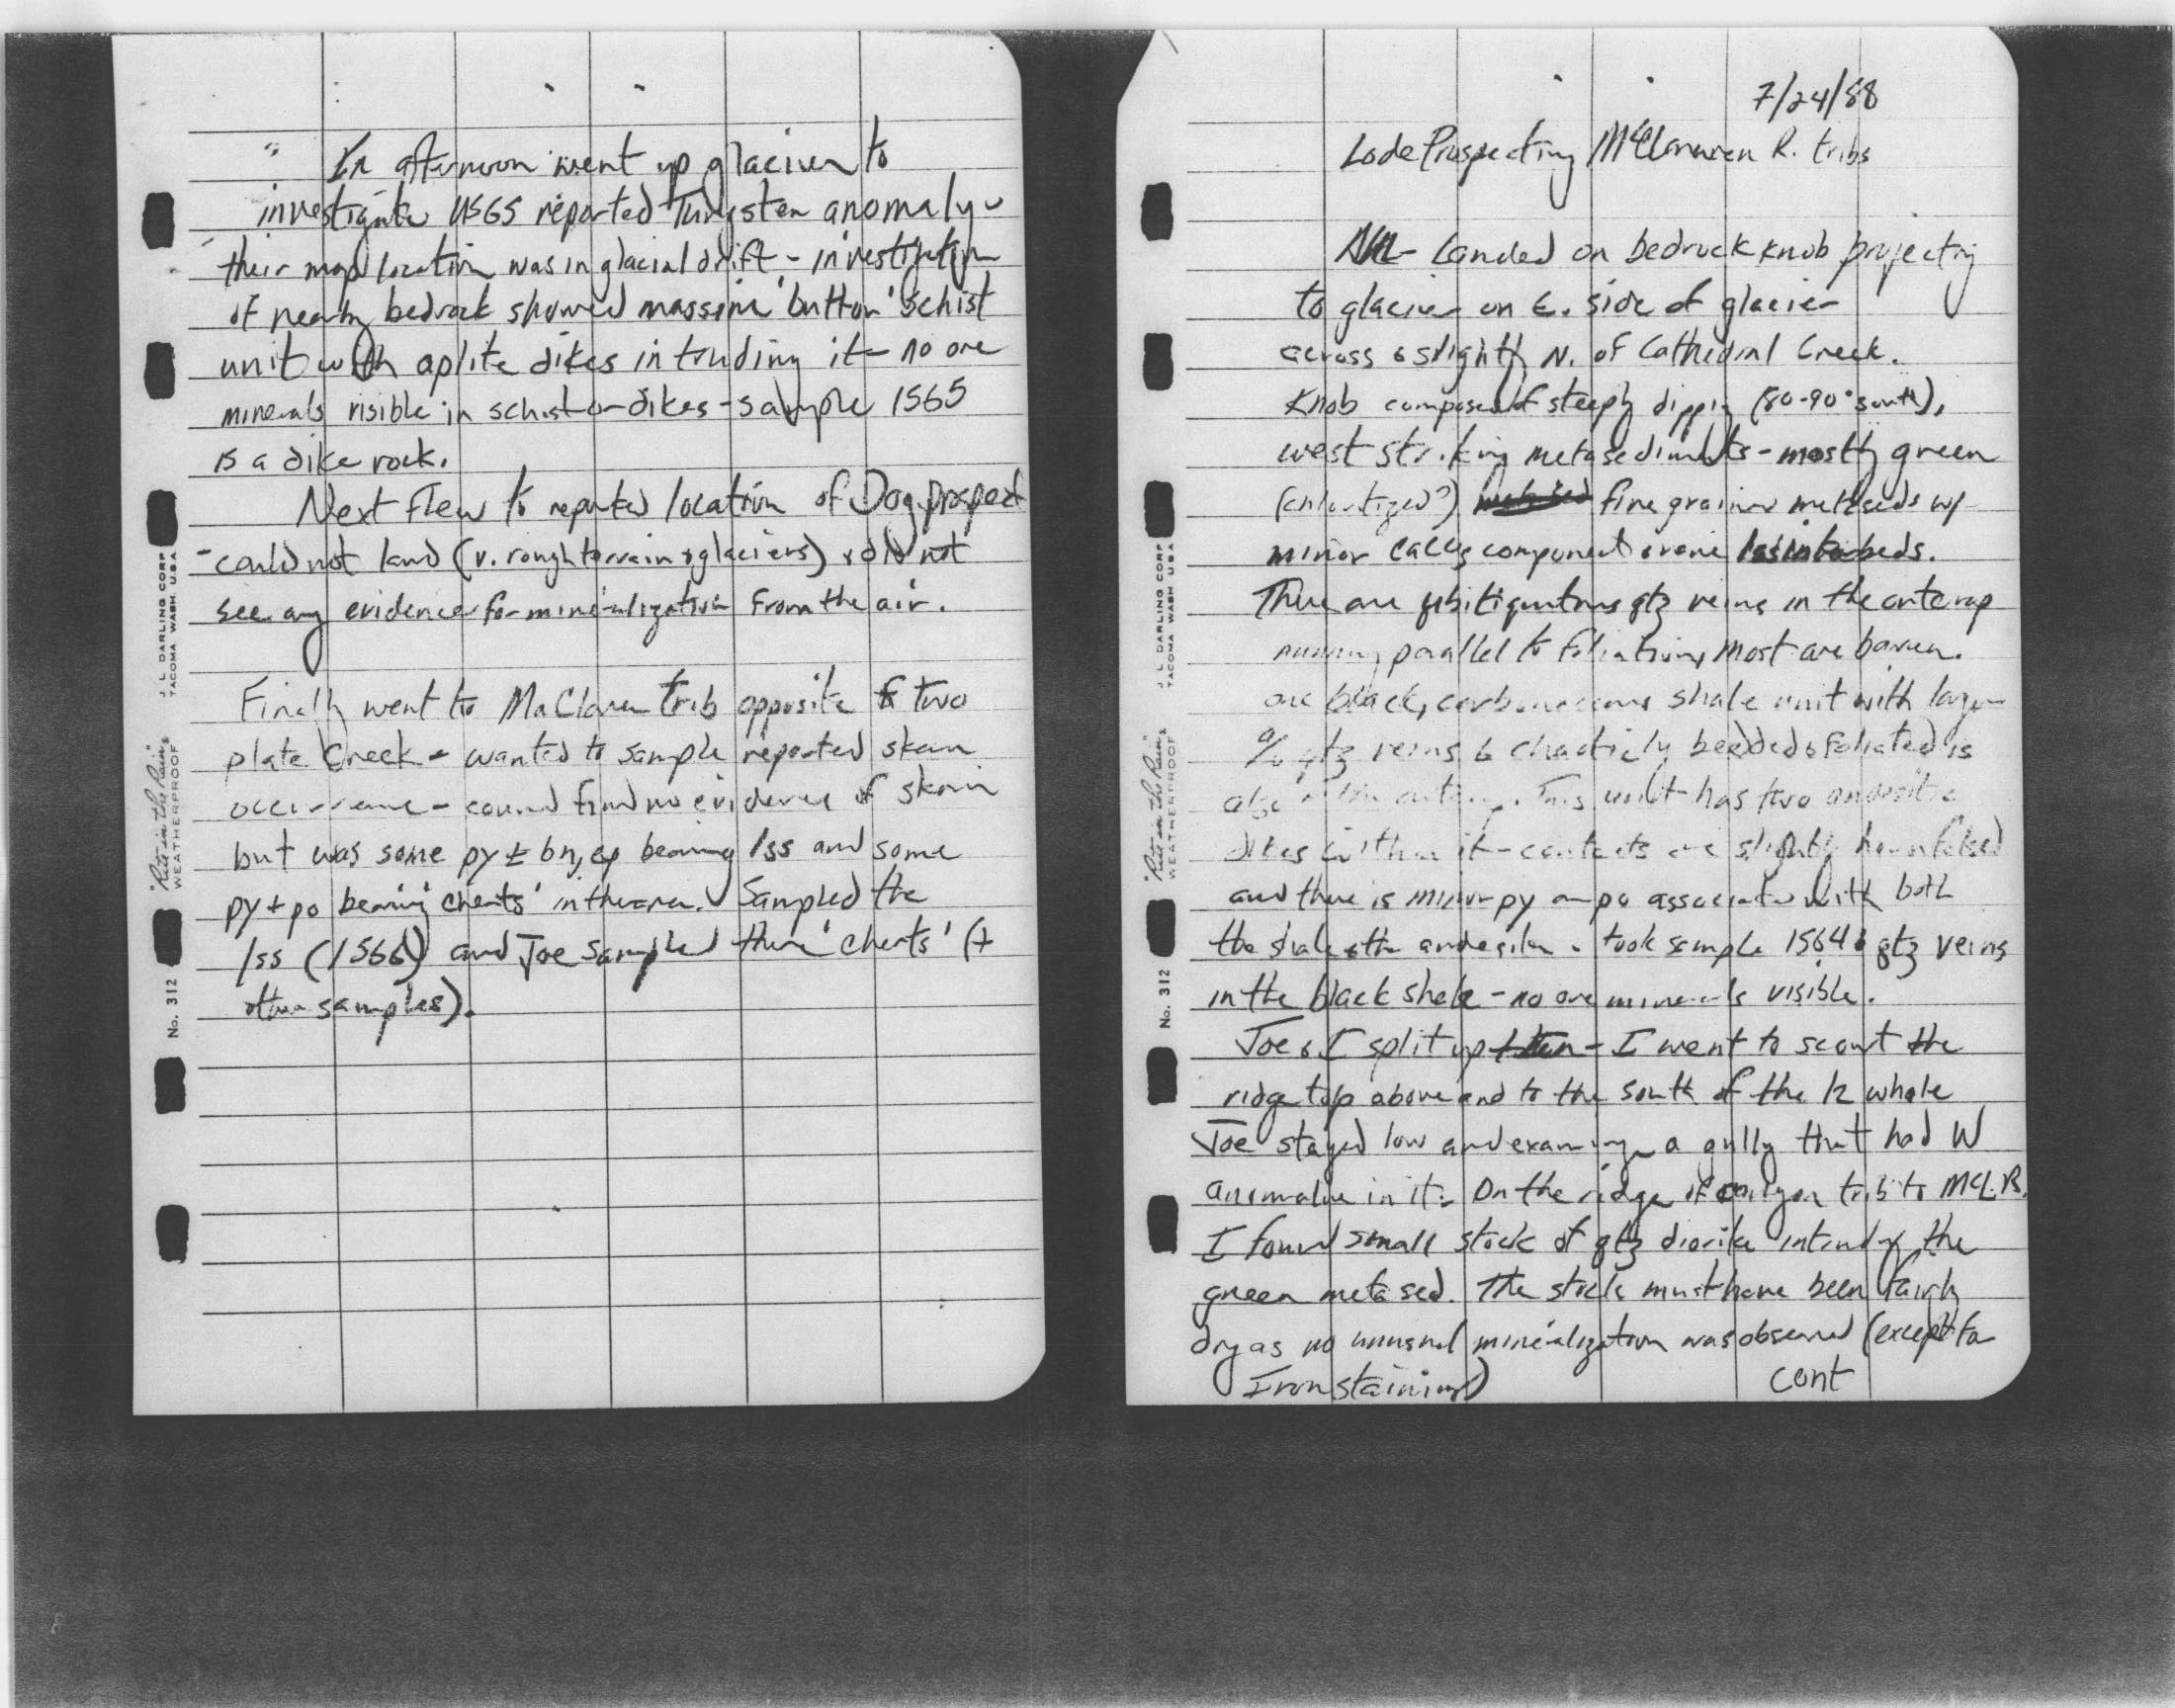 In afternoon went up glacier to
investigate USGS reported Tungsten anomaly -
their map location was in glacial drift - investigation
of nearby bedrock showed massive 'button' schist
unit with aplite dikes intruding it - no ore
minerals visible in schist or dikes - sample 1565
is a dike rock.
Next flew to reported location of Dog prospect
- could not land (v. rough terrain & glaciers) & did not
see any evidence for mineralization from the air.
Finally went to MaClaren trib opposite to two
plate Creek - wanted to sample reported skarn
occurrence - could find no evidence of skarn
but was some py ± bn, cp bearing lss and some
py + po bearing 'cherts' in the area. Sampled the
lss (1566) and Joe sampled the 'cherts' (+
other samples).
J. L. DARLING CORP
TACOMA WASH USA
"Rite in the Rain"
WEATHERPROOF
No. 312
7/24/88
Lode Prospecting McClaren R. tribs
Landed on bedrock knob projecting
to glacier on E. side of glacier
across & slightly N. of Cathedral Creek.
Knob composed of steeply dipping (80-90° south),
west striking metasediments - mostly green
(chloritized?) fine grained metaseds w/
minor calcs component & rare lss interbeds.
There are ubitiquitous qtz veins in the outcrop
running parallel to foliation, most are barren.
one black, carbonaceous shale unit with large
% qtz veins & chaoticly bedded & foliated is
also in the outcrop. This unit has two andesite
dikes within it - contacts are slightly hornfelsed
and there is minor py or po associated with both
the shale & the andesite. took sample 1564 qtz veins
in the black shale - no ore minerals visible.
Joe & I split up then - I went to scout the
ridge top above and to the south of the k whale
Joe stayed low and examining a gully that had W
anomalie in it. On the ridge of canyon trib to McL R.
I found small stock of qtz diorite intruding the
green meta sed. The stock must have been fairly
dry as no unusual mineralization was observed (except for
Iron staining)
cont
J. L. DARLING CORP
TACOMA WASH USA
"Rite in the Rain"
WEATHERPROOF
No. 312